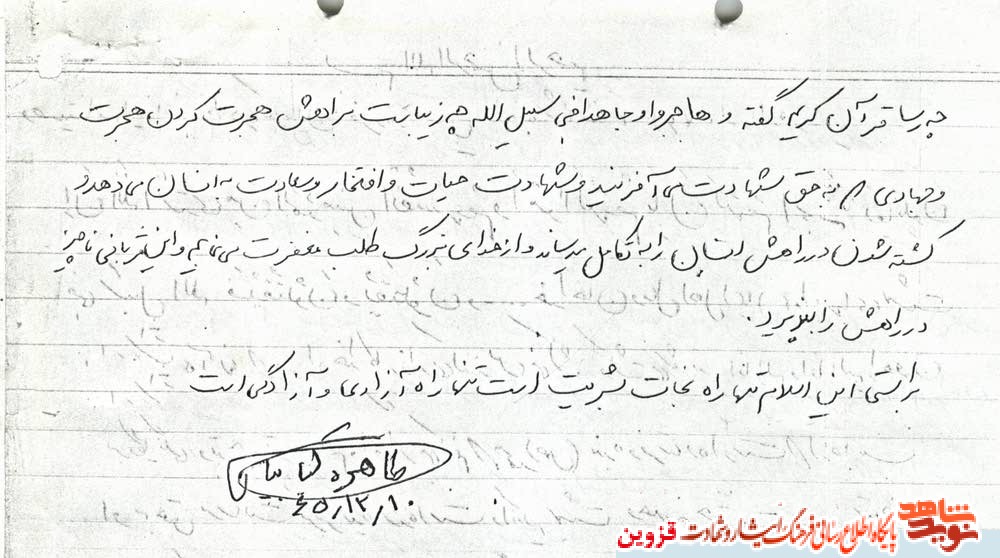 چه رسا قرآن کریم گفته و هاجروا و جاهدا فی سبیل الله چه زیباست در راهش هجرت کردن، هجرت
و جهادی که به حق شهادت می آفریند و شهادت حیات و افتخار و سعادت به انسان می دهد و
کشته شدن در راهش انسان را به تکامل می رساند و از خدای بزرگ طلب مغفرت می نمایم و این قربانی ناچیز
در راهش را بپذیرد.
براستی این اسلام تنها راه نجات بشریت است تنها راه آزادی و آزادگی است
طاهره
۶۵/۱۲/۱۰
نوید شاهد
پایگاه اطلاع رسانی فرهنگ ایثار و شهادت قزوین